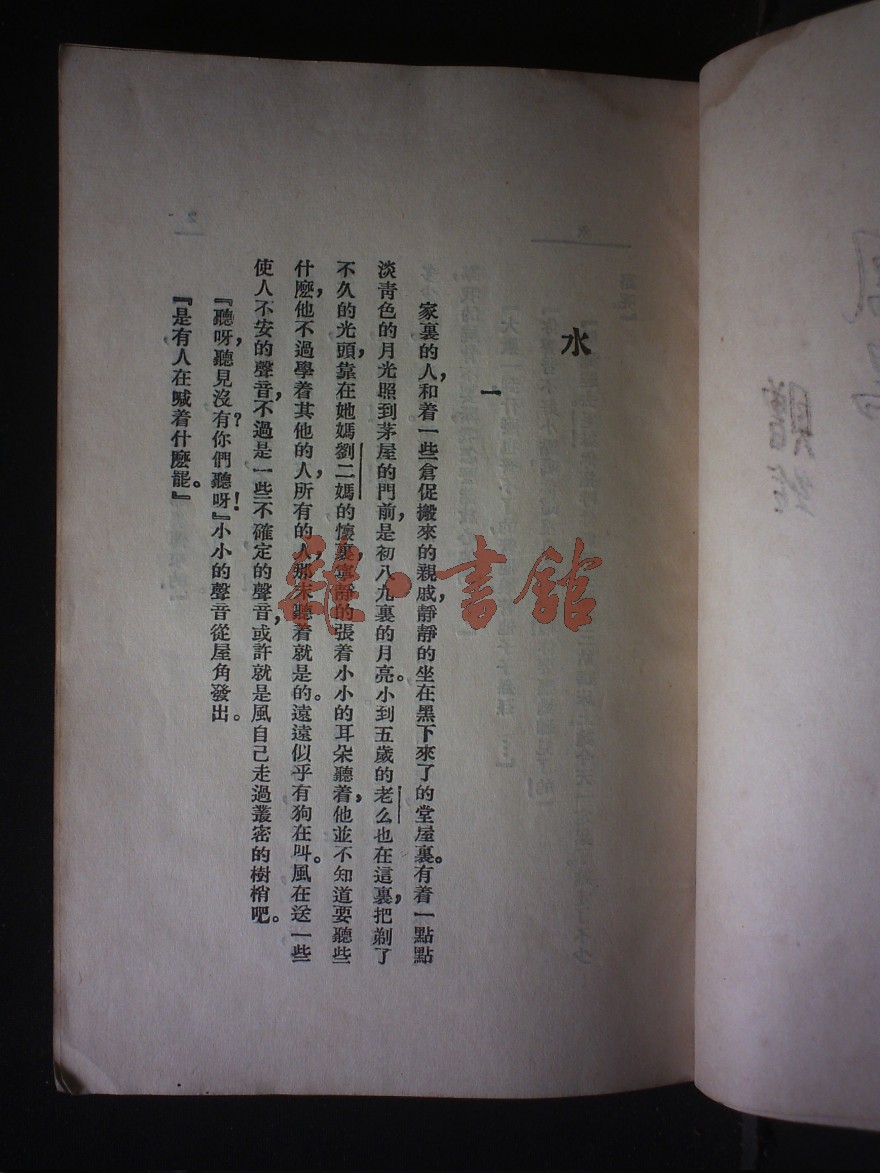 水
一
家裏的人，和着一些倉促搬來的親戚靜靜的坐在黑下來了的堂屋裏。有着一點點
淡青色的月光照到茅屋的門前，是初八九裏的月亮。小到五歲的老么也在這裏，把剃了
不久的光頭，靠在她媽劉二媽的懷裏，寧靜的張着小小的耳朵聽着，他並不知道要聽些
什麼，他不過學着其他的人，所有的人，那末聽着就是的。遠遠似乎有狗在叫。風在送一些
使人不安的聲音，不過是一些不確定的聲音，或許就是風自己走過叢密的樹梢吧。
『聽呀，聽見沒有？你們聽呀！』小小的聲音從屋角發出。
『是有人在喊着什麼罷。』
雜·書館